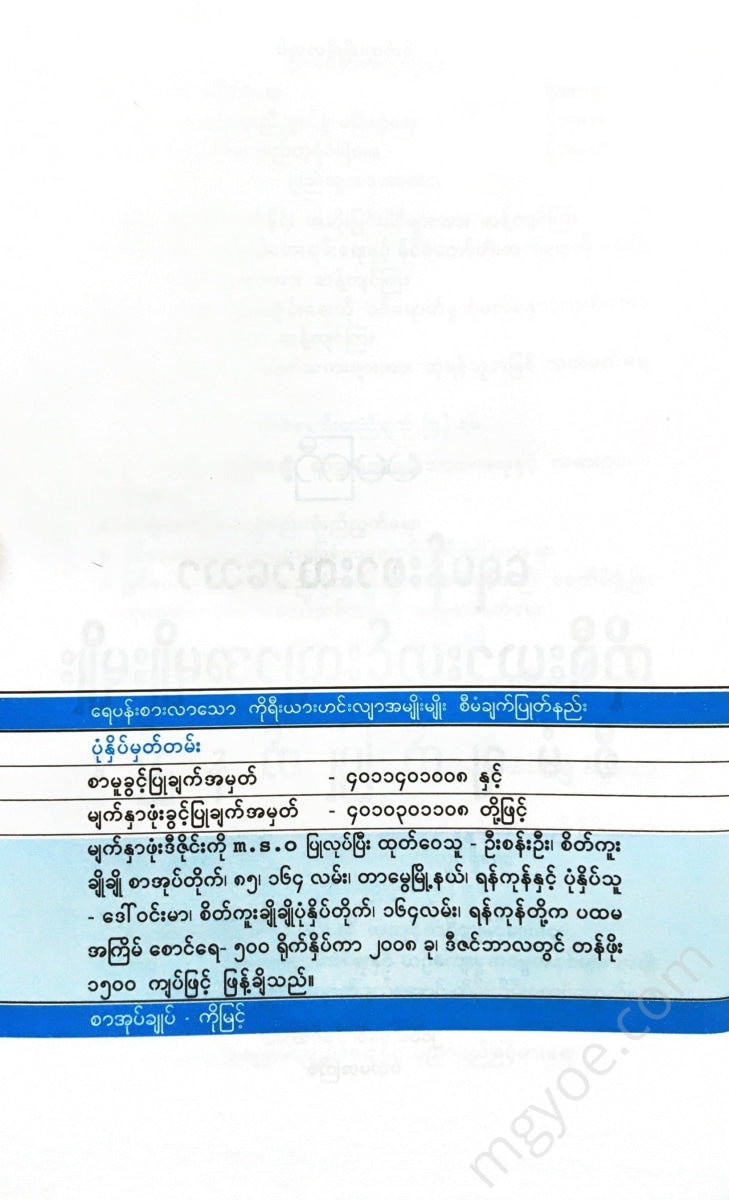 ရေပန်းစားလာသော ကိုရီးယားဟင်းလျာအမျိုးမျိုး စီမံချက်ပြုတ်နည်း
ပုံနှိပ်မှတ်တမ်း
စာမူခွင့်ပြုချက်အမှတ် - ၄၀၁၁၄၀၁၀၀၈ နှင့်
မျက်နှာဖုံးခွင့်ပြုချက်အမှတ် - ၄၀၁၀၃၀၁၁၀၈ တို့ဖြင့်
မျက်နှာဖုံးဒီဇိုင်းကို m.s.o ပြုလုပ်ပြီး ထုတ်ဝေသူ - ဦးစန်းဦး၊ စိတ်ကူး
ချိုချို စာအုပ်တိုက်၊ ၈၅၊ ၁၆၄ လမ်း၊ တာမွေမြို့နယ်၊ ရန်ကုန်နှင့် ပုံနှိပ်သူ
- ဒေါ်ဝင်းမာ၊ စိတ်ကူးချိုချိုပုံနှိပ်တိုက်၊ ၁၆၄လမ်း၊ ရန်ကုန်တို့က ပထမ
အကြိမ် စောင်ရေ- ၅၀၀ ရိုက်နှိပ်ကာ ၂၀၀၈ ခု၊ ဒီဇင်ဘာလတွင် တန်ဖိုး
၁၅၀၀ ကျပ်ဖြင့် ဖြန့်ချိသည်။
စာအုပ်ချုပ် - ကိုမြင့်
mgyoe.com